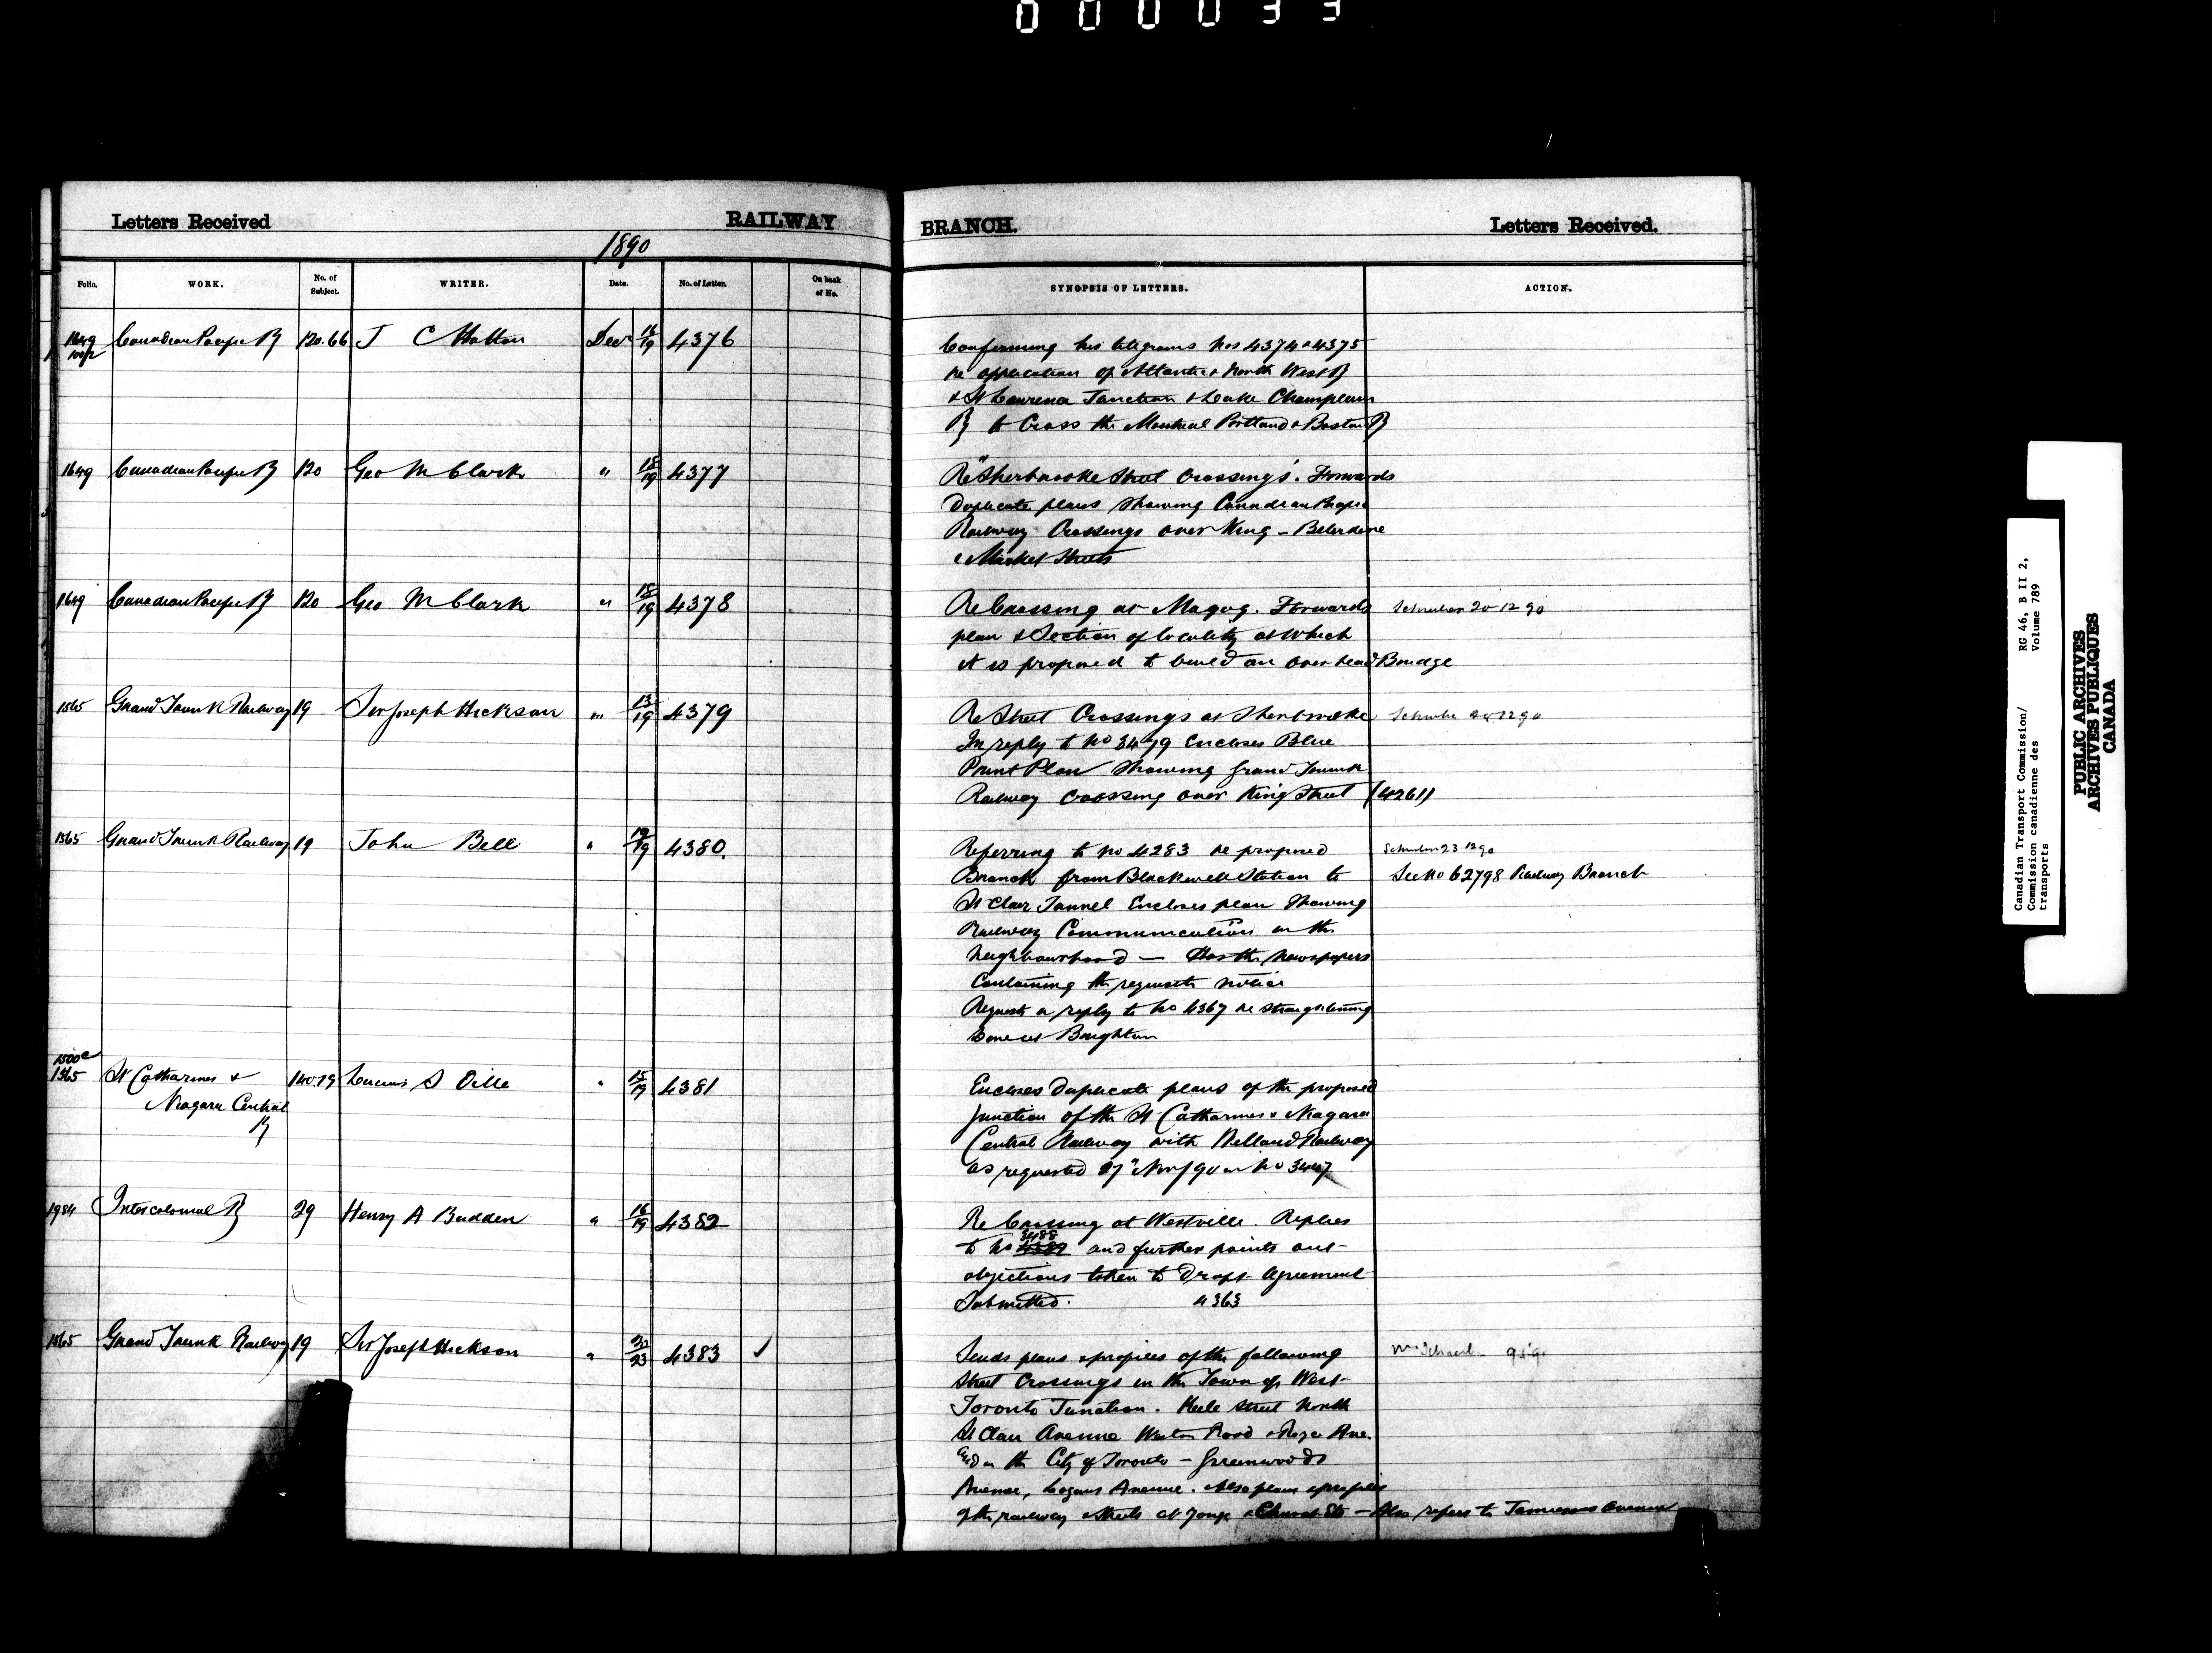 000033
Letters Received
RAILWAY
BRANCH.
Letters Received.
1890
Folio.
WORK.
No. of Subject.
WRITER.
Date.
No. of Letter.
On back of No.
SYNOPSIS OF LETTERS.
ACTION.
1649 Canadian Pacific Ry 120.66 J C Hatton Decr 16/19 4376
Confirming his telegrams Nos 4374 & 4375
re application of Atlantic & North West Ry
& St Lawrence Junction & Lake Champlain
Ry to Cross the Montreal Portland & Boston Ry
1649 Canadian Pacific Ry 120 Geo M Clark " 18/19 4377
Re "Sherbrooke Street Crossings". Forwards
Duplicate plans showing Canadian Pacific
Railway Crossings over King - Belvedere
& Market Streets
1649 Canadian Pacific Ry 120 Geo M Clark " 18/19 4378
Re Crossing at Magog. Forwards
Schreiber 20-12 90
plan & Section of locality at which
it is proposed to build an overhead Bridge
1565 Grand Trunk Railway 19 Sir Joseph Hickson " 13/19 4379
Re Street Crossings at Sherbrooke
In reply to No 3479 Encloses Blue
Print Plan Showing Grand Trunk
Railway Crossing over King Street (4261)
1565 Grand Trunk Railway 19 John Bell " 19/19 4380.
Referring to No 4283 re proposed
Schreiber 23 12 90
Branch from Blackwell Station to
See No 62798 Railway Branch
St Clair Tunnel Encloses plan Showing
Railway Communication in the
neighbourhood — Has the newspapers
Containing the requisite notice
Requests a reply to No 4367 re straightening
Brighton
1565 St Catharines & 140.19 Lucius S Oille " 15/19 4381
Niagara Central
Ry
Encloses Duplicate plans of the proposed
junction of the St Catharines & Niagara
Central Railway with Welland Railway
as requested 27" Nov/90 in No 3447
1984 Intercolonial Ry 29 Henry A Budden " 16/19 4382
Re Crossing at Westville. Replies
3488
to No and further points out
objections taken to Draft Agreement
Submitted. 4363
1565 Grand Trunk Railway 19 Sir Joseph Hickson " 20/23 4383 ✓
Sends plans & profiles of the following
Street Crossings in the Town of West
Toronto Junction. Keele Street North
St Clair Avenue Weston Road & Royce Ave.
And in the City of Toronto - Greenwoods
Avenue, Logans Avenue. Also plans & profiles
of the railway & streets at Yonge & Church Sts - Also refers to Jamesons Avenue
Canadian Transport Commission/
Commission canadienne des
transports
RG 46, B II 2,
Volume 789
PUBLIC ARCHIVES
ARCHIVES PUBLIQUES
CANADA